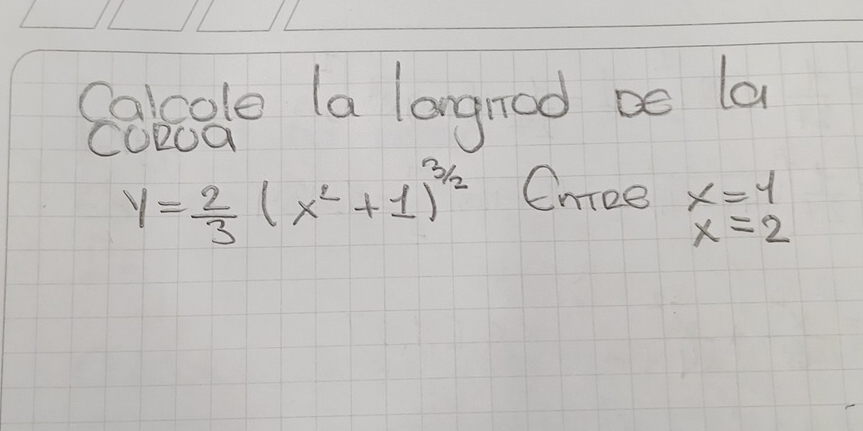 Calcole la longitod de la
coroa
y = 2/3 (x² + 1)^3/2 Entre x = 1
x = 2